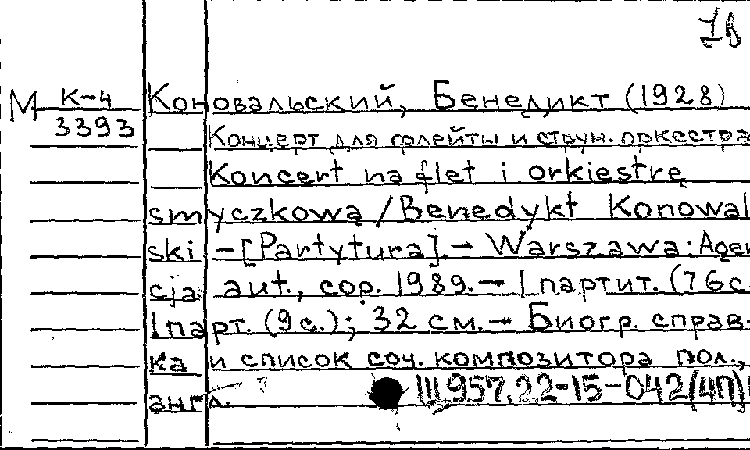 1в
М К-4 Коновальский, Бенедикт (1928)
3393 Концерт для флейты и струн. оркестра
Koncert na flet i orkiestrę
smyczkową / Benedykt Konowal
ski – [Partytura]. – Warszawa: Agen
cja aut., cop. 1989. – 1 партит. (76 с.
1 парт. (9 с.); 32 см. – Биогр. справ-
ка и список соч. композитора пол.,
англ. Ш957.22-15-042(4П)